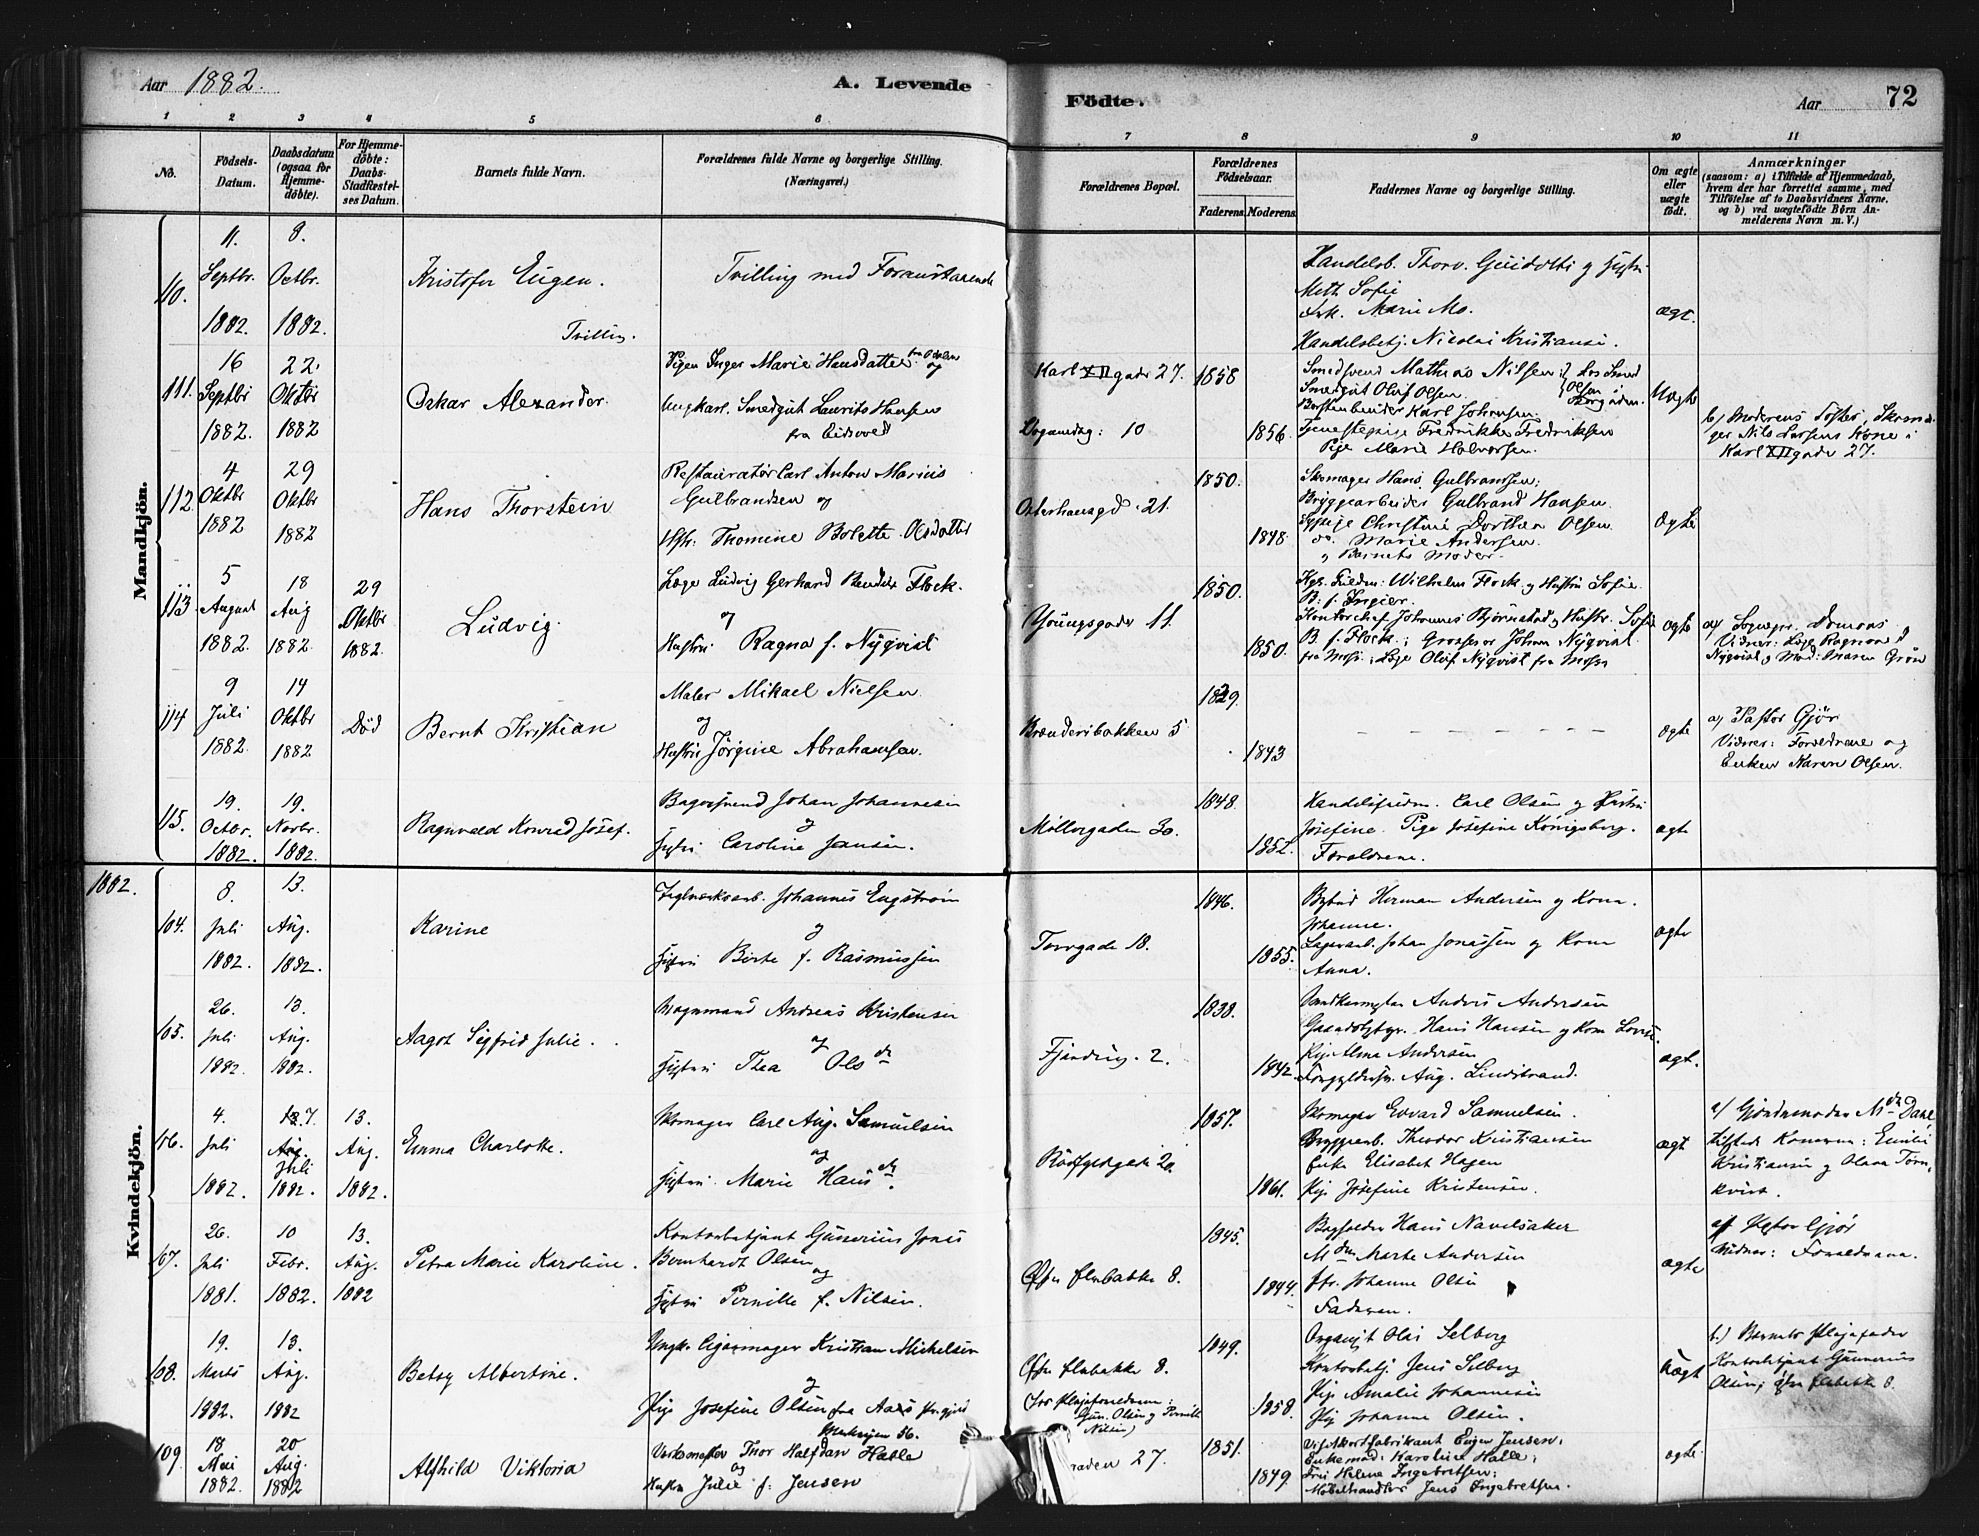 Aar 1882. A. Levende
Födte. Aar 72
1 2 3 4 5 6 7 8 9 10 11
No.
Födsels-
Datum.
Daabsdatum
(ogsaa for
Hjemme-
döbte).
For Hjemme-
döbte:
Daabs-
Stadfæstel-
ses Datum.
Barnets fulde Navn.
Forældrenes fulde Navne og borgerlige Stilling.
(Næringsvei.)
Forældrenes Bopæl.
Forældrenes
Födselsaar.
Faderens. Moderens.
Faddernes Navne og borgerlige Stilling.
Om ægte
eller
uægte
födt.
Anmærkninger
(saasom: a) i Tilfælde af Hjemmedaab,
hvem der har forrettet samme, med
Tilföielse af to Daabsvidners Navne.
og b) ved uægtefödte Börn An-
melderens Navn m. V.)
Mandkjön.
110.
11.
Septbr.
1882.
8.
Octbr.
1882.
Kristofer Eugen.
Tvilling.
Tvilling med Foranstaaende
Handelsb. Thorv. Guidotti og Hustru
Meth Sofie
Frk. Marie Mo.
Handelsbetj. Nicolai Kristiansen.
ægt.
111.
16
Septbr
1882.
22.
Oktbr
1882
Oskar Alexander.
Pigen Inger Marie Hansdatter og
Ungkarl. Smedgut Laurits Hansen
fra Eidsvold
Karl XII gade 27.
1858
1856.
Smedsvend Mathias Nilsen
Smedgut Oluf Olsen.
Börstenbinder Karl Johansen.
Tjenestepige Fredrikke Fredriksen
Pige Marie Halvorsen.
Uægte
b) Moderens Söster, Skoma-
ger Nils Larsens Kone i
Karl XII gade 27.
112.
4
Oktbr
1882
29
Oktbr
1882
Hans Thorstein
Restauratör Carl Anton Marius
Gulbrandsen og
Hstr: Thomine Bolette Olsdatter
Osterhausgd. 21.
1850.
1848
Skomager Hans Gulbransen;
Bryggearbeider Gulbrand Hansen
Sypige Christine Dorthea Olsen
do. Marie Andersen
og Barnets Moder.
ægte
113
5
August
1882.
18
Aug
1882.
29
Oktbr
1882.
Ludvig.
Læge Ludvig Gerhard Bendix Flock.
og
Hustru Ragna f. Nyqvist
Youngsgade 11.
1850.
1850.
Wilhelm Flock og Hustru Sofie
B: f. Ingier.
Kontorchef Johannes Björnstad og Hustr. Sofie
B. f. Flock; Grosserer Johan Nyqvist
fra Moss; Læge Oluf Nyqvist fra Moss
ægte
a) Sogneprest
Vidner: Læge Ragnvald
Nyqvist og Mad: Maren Grön
114
9
Juli
1882.
14
Oktbr
1882
Död
Bernt Kristian
Maler Mikael Nielsen
og
Hustru Jörgine Abrahamsen.
Brænderibakken 5
1829.
1843
ægte
a) Pastor Gjör
Vidner: Forældrene og
Enken Maren Olsen.
115.
19.
Octbr.
1882.
19.
Novbr.
1882.
Ragnvald Konrad Josef.
Bagersvend Johan Johannesen
og
Hustru Caroline Jansen.
Möllergaden 30.
1848.
1852.
Handelsfuldm. Carl Olsen og Hustru
Josefine. Pige Josefine Königsberg.
Forældrene.
ægte
1882.
Kvindekjön.
104.
8.
Juli
1882.
13.
Aug.
1882.
Karine
Teglværksarb. Johannes Engström
og
Hustru Birte f. Rasmussen
Torvgade 18.
1846.
1855.
Bybud Herman Andersen og Kone
Johanne.
Lagerarb. Johan Jonassen og Kone
Anna.
ægte
105.
26.
Juli
1882.
13.
Aug.
1882.
Aagot Sigfrid Julie.
Vognmand Andreas Kristensen
og
Hustru Thea Olsdr
2.
1838.
1842.
Vandkarmester Anders Andersen
Hans Hansen og Kone Lovise.
Pige Alma Andersen
Aug. Lindstrand.
ægt.
106.
4.
Juli
1882.
7
Aug.
Juli
1882.
13.
Aug.
1882.
Emma Charlotte.
Skomager Carl Aug. Samuelsen
og
Hustru Marie Hansdr.
Rödfyldgade 20.
1857.
1861.
Skomager Edvard Samuelsen.
Bryggearb. Theodor Kristiansen
Enke Elisabet Hagen
Pige Josefine Kristensen.
ægt
a) Gjordemoder Mdm Dahl,
tilstede Konerne: Emilie
Kristiansen og Olava Törn-
kvist.
107.
26.
Juli
1881.
10
Febr.
1882.
13.
Aug.
1882
Petra Marie Karoline.
Kontorbetjent Gunerius Jonis
Bernhardt Olsen
og
Hustru Pernille f. Nilsen.
8.
1845.
1844.
Bogholder Hans Navelsaker
Mdm Marte Andersen
Johanne Olsen
Faderen.
ægte
a) Pastor Gjör
Vidner: Forældrene.
108.
19.
Marts
1882.
13.
Aug.
1882
Betsy Albertine.
Ungk. Cigarmager Kristian Mickelsen
og
Pige Josefine Olsen fra Aas
8.
(hos Plejeforældrene:
Gun. Olsen og Pernille
Nilsen)
1849.
1858.
Organist Olai Selberg
Kontorbetj. Jens Selberg
Pige Amalie Johannesen
Pige Johanne Olsen.
uægt
b.) Barnets Plejefader
Kontorbetjent Gunnerius
Olsen, 8.
109.
18
Mai
1882.
20
Aug.
1882
Alfhild Viktoria
56.
Værksmester Thor Halfdan Halle
og
Hustru Julie f. Jensen
raden 27.
1851.
1849.
Visitkortfabrikant Eugen Jensen;
Enkemad: Karoline Halle;
Fru Helene Ingebretsen;
Möbelhandler Jens Ingebretsen.
ægte